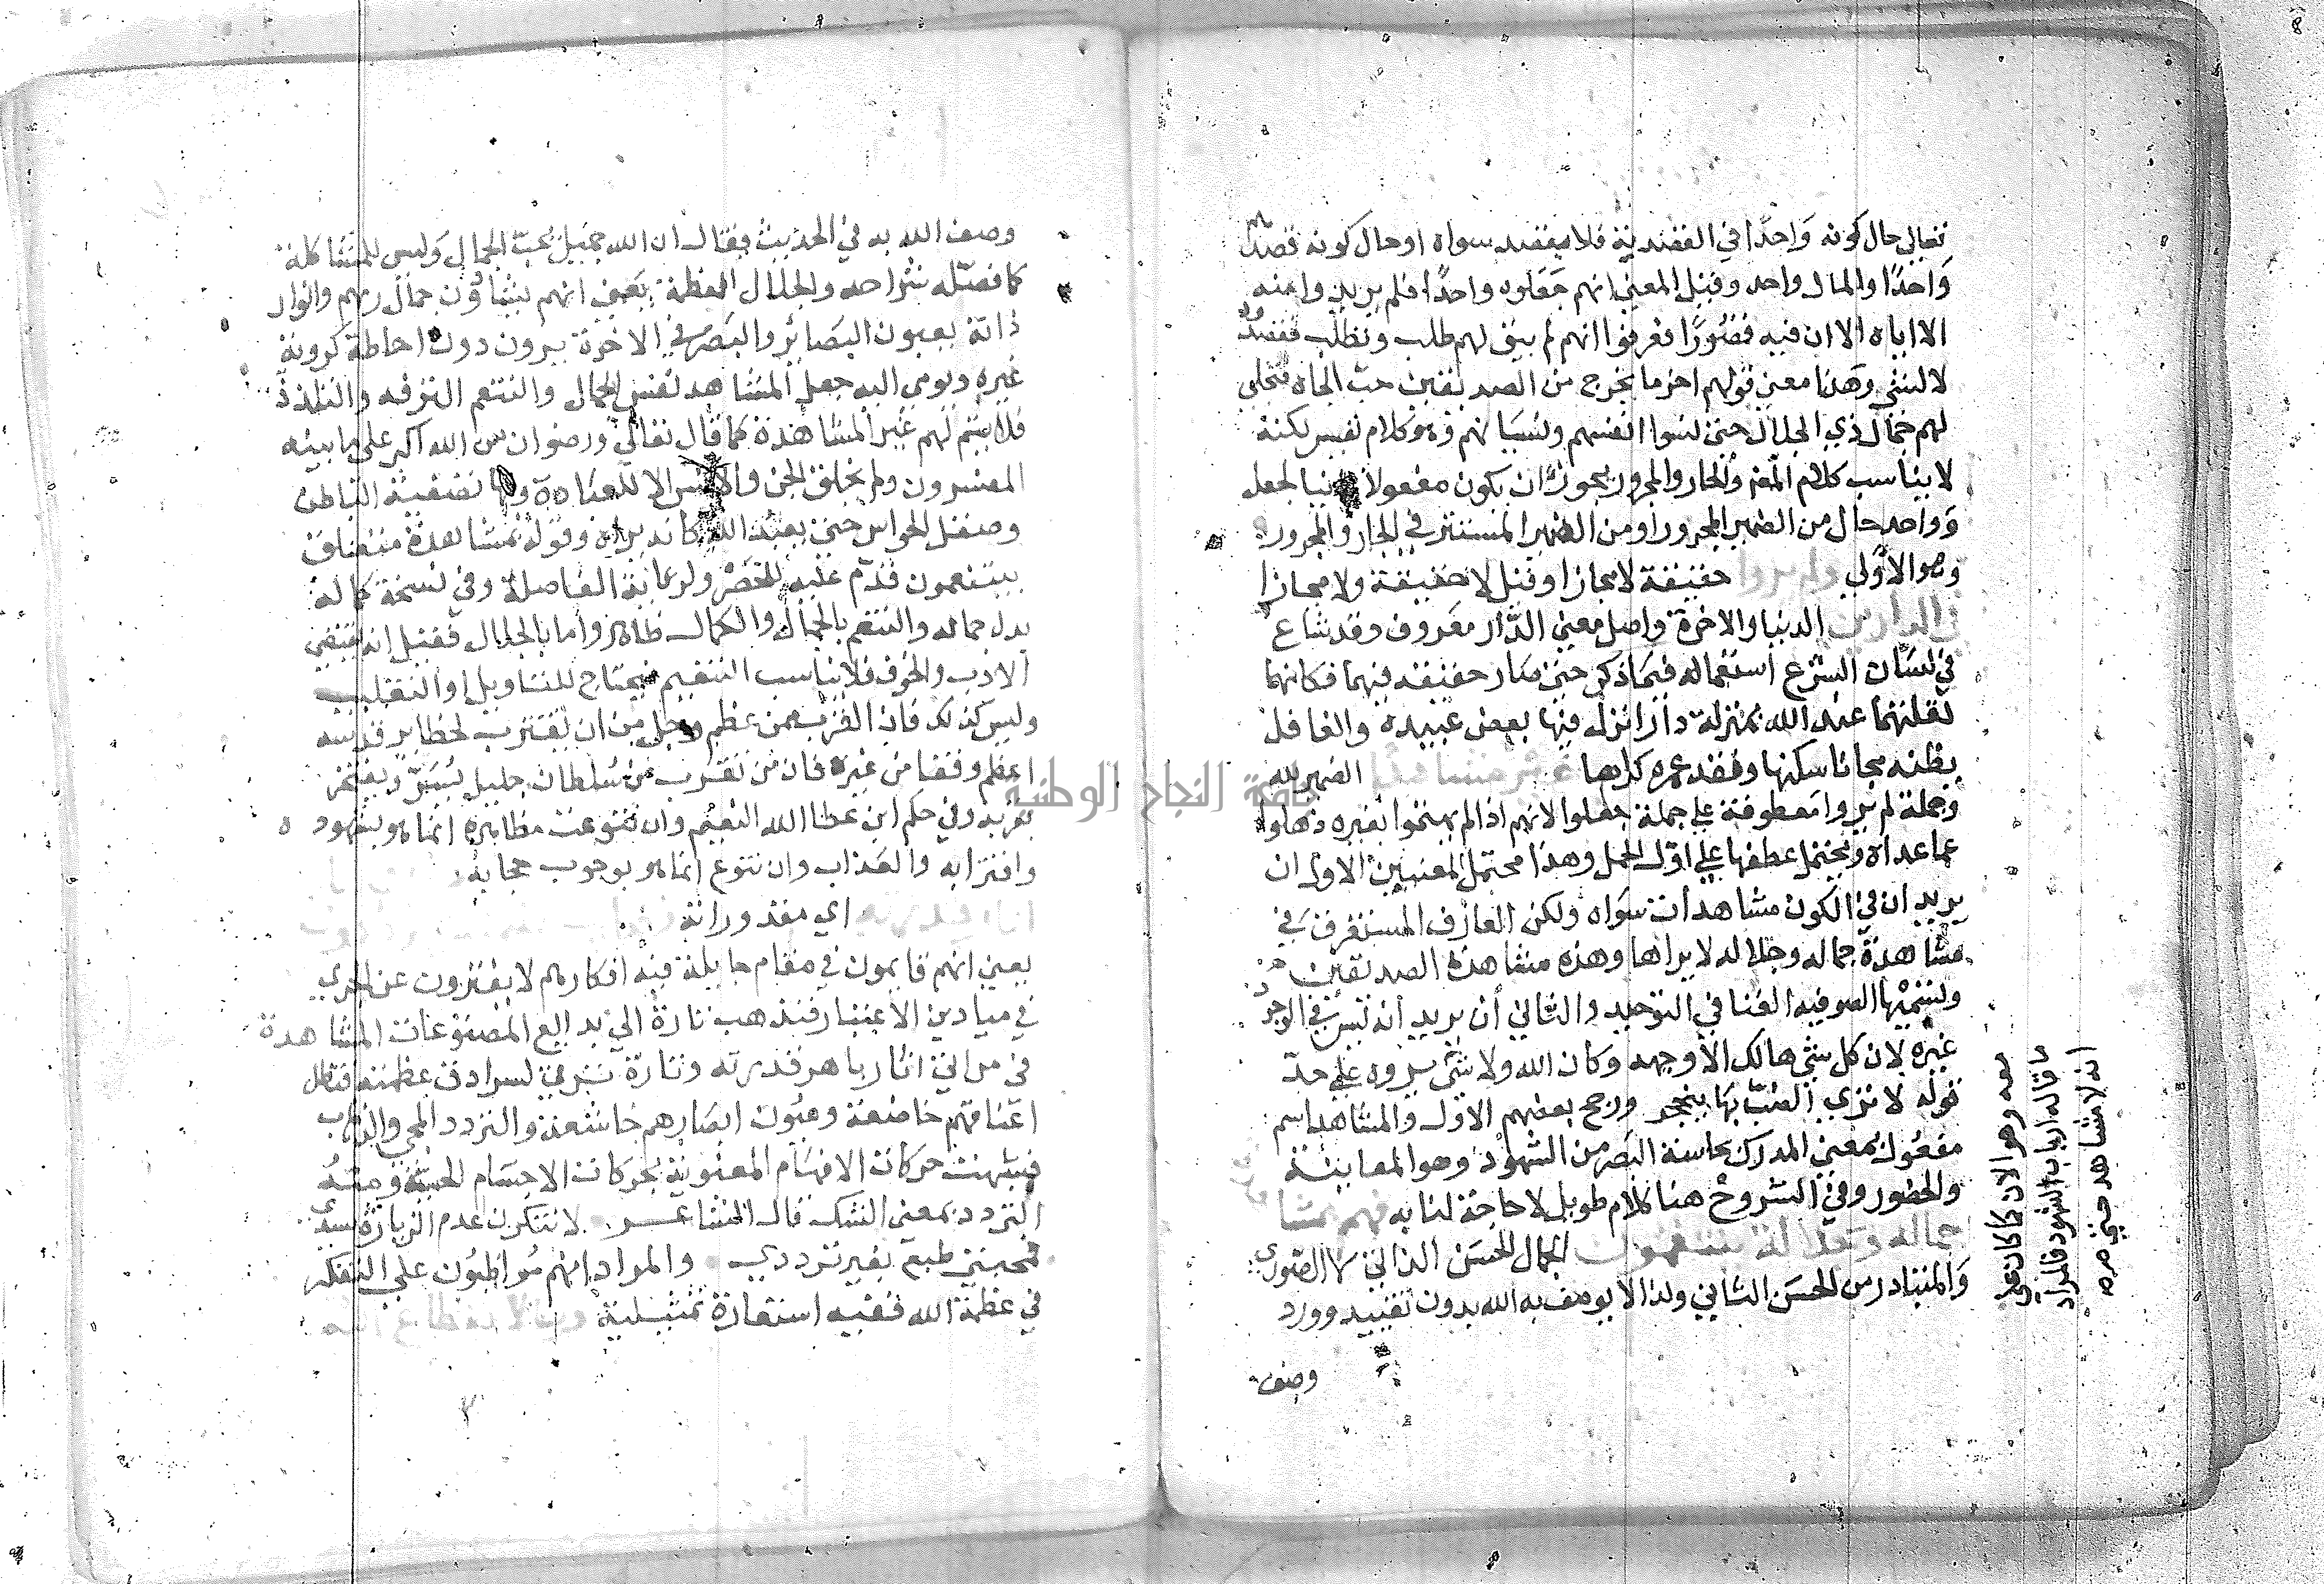 تعالى حال كونه واحدا في القصدية فلا يقصد سواه او حال كونه قصدهم
واحدا والمال واحد وقيل المعنى انهم جعلوه واحدا فلم يريدوا منه
الا اياه الا ان فيه قصورا فعرفوا انهم لم يبق لهم طلب وتطلب فقصد
لا لشي وهذا معنى قولهم اخر ما يخرج من الصديقين حب الجاه فتجلى
لهم جمال ذي الجلال حتى نسوا انفسهم ونسيانهم وهو كلام نفيس لكنه
لا يناسب كلام المص والجار والمجرور يجوز ان يكون مفعولا ثانيا لجعل
وواحد حال من الضمير المجرور او من الضمير المستتر في الجار والمجرور
وهو الاولى ولم يروا حقيقة لا مجازا وقيل لا حقيقة ولا مجازا
في الدارين الدنيا والاخرة واصل معنى الدار معروف وقد شاع
في لسان الشرع استعماله فيما ذكر حتى صار حقيقة فيهما فكانهما
لقلتهما عند الله بمنزلة دار انزل فيها بعض عبيده والغافل
يظنه مجانا سكنها وفقد عمره كراها غير مشاهدا الضمير لله
وجملة لم يروا معطوفة على جملة جعلوا لانهم اذا لم يهتموا بغيره ذهلوا
عما عداه ويحتمل عطفها على اول الجمل وهذا محتمل المعنيين الاول ان
يريد ان في الكون مشاهدات سواه ولكن العارف المستغرق في
مشاهدة جماله وجلاله لا يراها وهذه مشاهدة الصديقين
وتسميها الصوفية الفنا في التوحيد والثاني ان يريد انه ليس في الوجود
غيره لان كل شي هالك الا وجهه وكان الله ولا شي يروه على حد
قوله لا ترى الضب بها ينجحر ورجح بعضهم الاول والمشاهد اسم
مفعول بمعنى المدرك بحاسة البصر من الشهود وهو المعاينة
والحضور وفي الشروح هنا كلام طويل لا حاجة لنا به فهم بمشا
جماله وجلاله يتنعمون الجمال الحسن الذاتي لا الصوري
والمتبادر من الحسن الثاني ولذا لا يوصف به الله بدون تقييد وورد
وصف
معه وهو الان كما كان
ما قاله ارباب الشهود فالمراد
انه لا مشاهد حتى
وصف الله به في الحديث فقال ان الله جميل يحب الجمال وليس للمشاكلة
كما فصله شراحه والجلال العظمة يعني انهم يشاهدون جمال ربهم وانوار
ذاته بعيون البصائر والبصر في الاخرة يرون دون احاطة كرونة
غيره ويومي اليه جعل المشاهد نفس الجمال والتنعم الترفه والتلذذ
فلا يتم لهم غير المشاهدة كما قال تعالى ورضوان من الله اكبر على ما بينه
المفسرون ولم يخلق الجن والانس الا للعبادة وبها تصفية الباطن
وصقل الحواس حتى يعبد الله كانه يراه وقوله بمشاهدة متعلق
بيتنعمون قدم عليه للحصر ولرعاية الفاصلة وفي نسخة كماله
بدل جماله والتنعم بالجمال والكمال ظاهر واما بالجلال فقيل انه يقتضي
الادب والخوف فلا يناسب التنعيم فيحتاج للتاويل او التغليب
وليس كذلك فان القرب ممن عظم وجل من ان يقترب لحظاير قدسه
اعظم وقعا من غيره فان من تقرب من سلطان جليل يسر ويفتخر
بقربه وفي حكم ابن عطا الله النعيم وان تنوعت مظاهره انما هو بشهود ه
واقترابه والعذاب وان تنوع انما هو بوجوب حجابه
اي مقدوراته
يعني انهم قايمون في مقام جايلة فيه افكارهم لا يفترون عن الجري
في ميادين الاعتبار فتذهب تارة الى بدايع المصنوعات المشاهدة
في مرائي اثار باهر قدرته وتارة تترقى لسرادق عظمته فتظل
اعناقهم خاضعة وعيون ابصارهم خاشعة والتردد المجي والذهاب
فشبهت حركات الافهام المعنوية بحركات الاجسام الحسية ومنه
التردد بمعنى الشك قال الشاعر لا تنكرن عدم الزيارة سيدي
فمحبتي طبع بغير ترددي والمراد انهم مواظبون على التفكر
في عظمة الله ففيه استعارة تمثيلية وبالانقطاع اليه
جامعة النجاح الوطنية